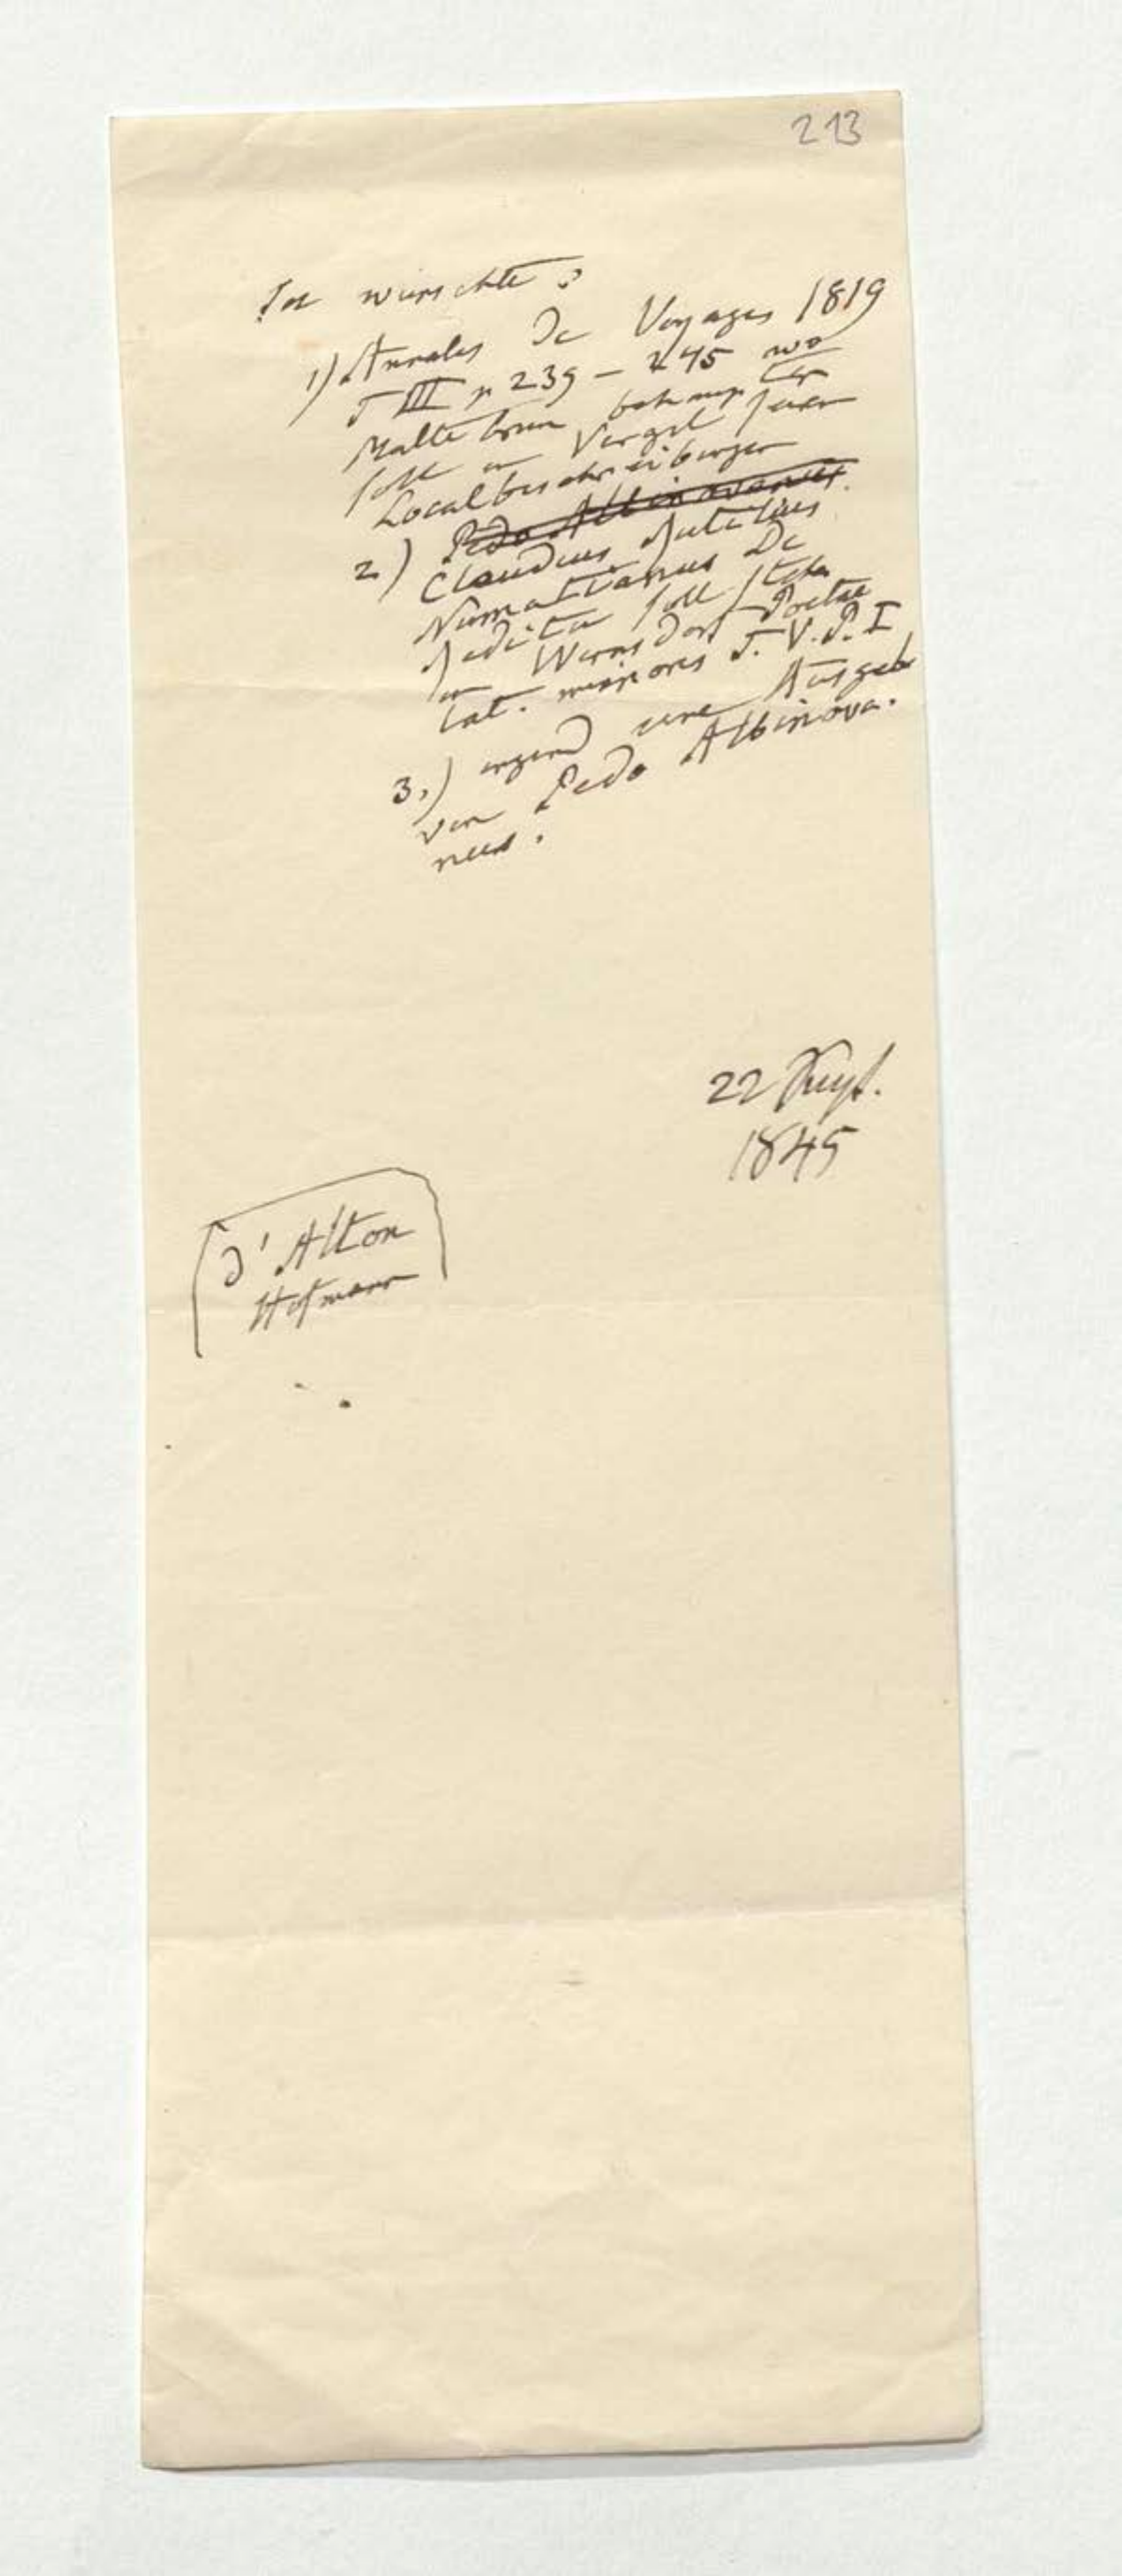 213
Ich wünschte :
1) Annales de Voyages 1819
T III p 239 – 245 wo
Malte brun behaupten
soll in Virgil seien
Localbeschreibungen
2.) Pedo Albinovanus.
Claudius Rutilius
Numatianus De
Reditu soll stehen
in Wernsdorf Poetae
lat. minores T. V. P. I
3.) irgend eine Ausgabe
von Pedo Albinova.
nus.
22
1845
d'Alton
Hofmann